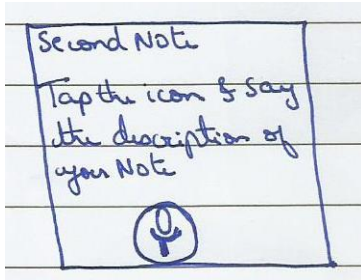 Second Note
Tap the icon & Say
the description of
your Note